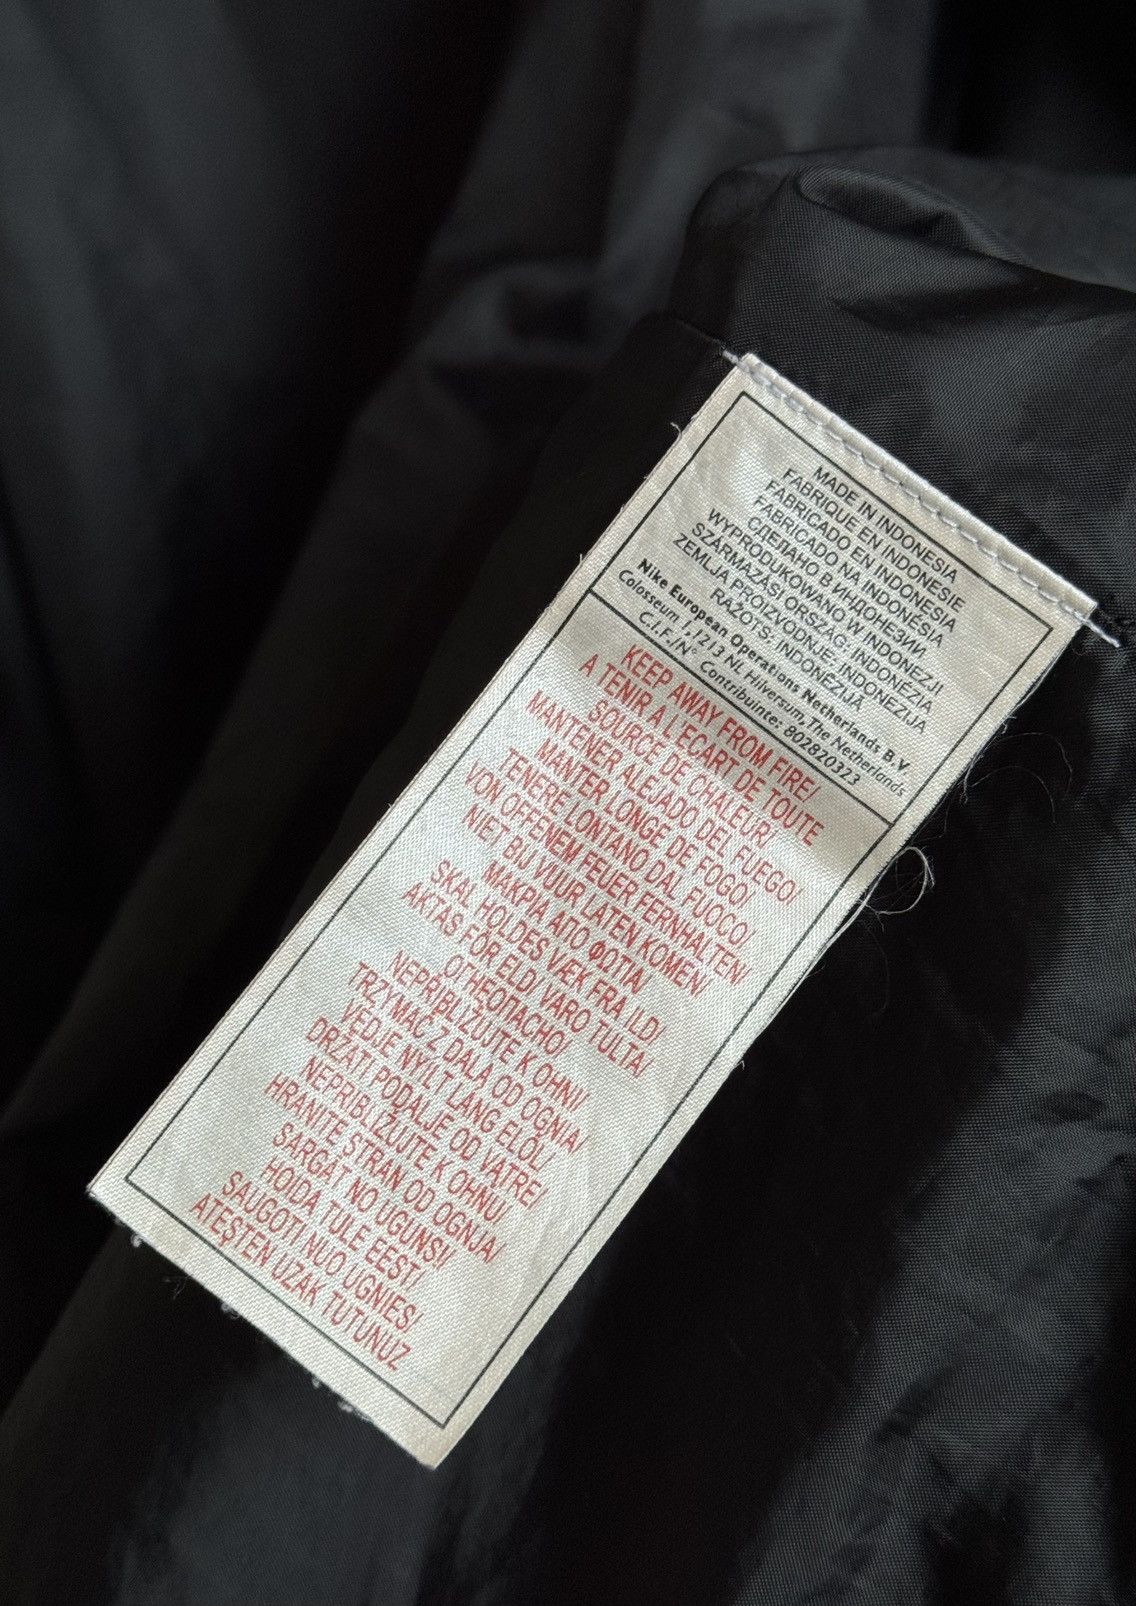 MADE IN INDONESIA
FABRIQUE EN INDONESIE
FABRICADO EN INDONESIA
FABRICADO NA INDONÉSIA
СДЕЛАНО В ИНДОНЕЗИИ
WYPRODUKOWANO W INDONEZJI
SZÁRMAZÁSI ORSZÁG: INDONÉZIA
ZEMLJA PROIZVODNJE: INDONEZIJA
RAŽOTS: INDONĒZIJA
Nike European Operations Netherlands B.V.
Colosseum 1, 1213 NL Hilversum, The Netherlands
C.I.F./N° Contribuinte: 802820323
KEEP AWAY FROM FIRE/
A TENIR A L'ECART DE TOUTE
SOURCE DE CHALEUR/
MANTENER ALEJADO DEL FUEGO/
MANTER LONGE DE FOGO/
TENERE LONTANO DAL FUOCO/
VON OFFENEM FEUER FERNHALTEN/
NIET BIJ VUUR LATEN KOMEN/
ΜΑΚΡΙΑ ΑΠΟ ΦΩΤΙΑ/
SKAL HOLDES VÆK FRA ILD/
AKTAS FÖR ELD/ VARO TULTA/
ОГНЕОПАСНО/
NEPRIBLIŽUJTE K OHNI/
TRZYMAĆ Z DALA OD OGNIA/
VÉDJE NYÍLT LÁNG ELŐL/
DRŽATI PODALJE OD VATRE/
NEPRIBLIŽUJTE K OHŇU/
HRANITE STRAN OD OGNJA/
SARGĀT NO UGUNS!/
HOIDA TULE EEST/
SAUGOTI NUO UGNIES/
ATEŞTEN UZAK TUTUNUZ